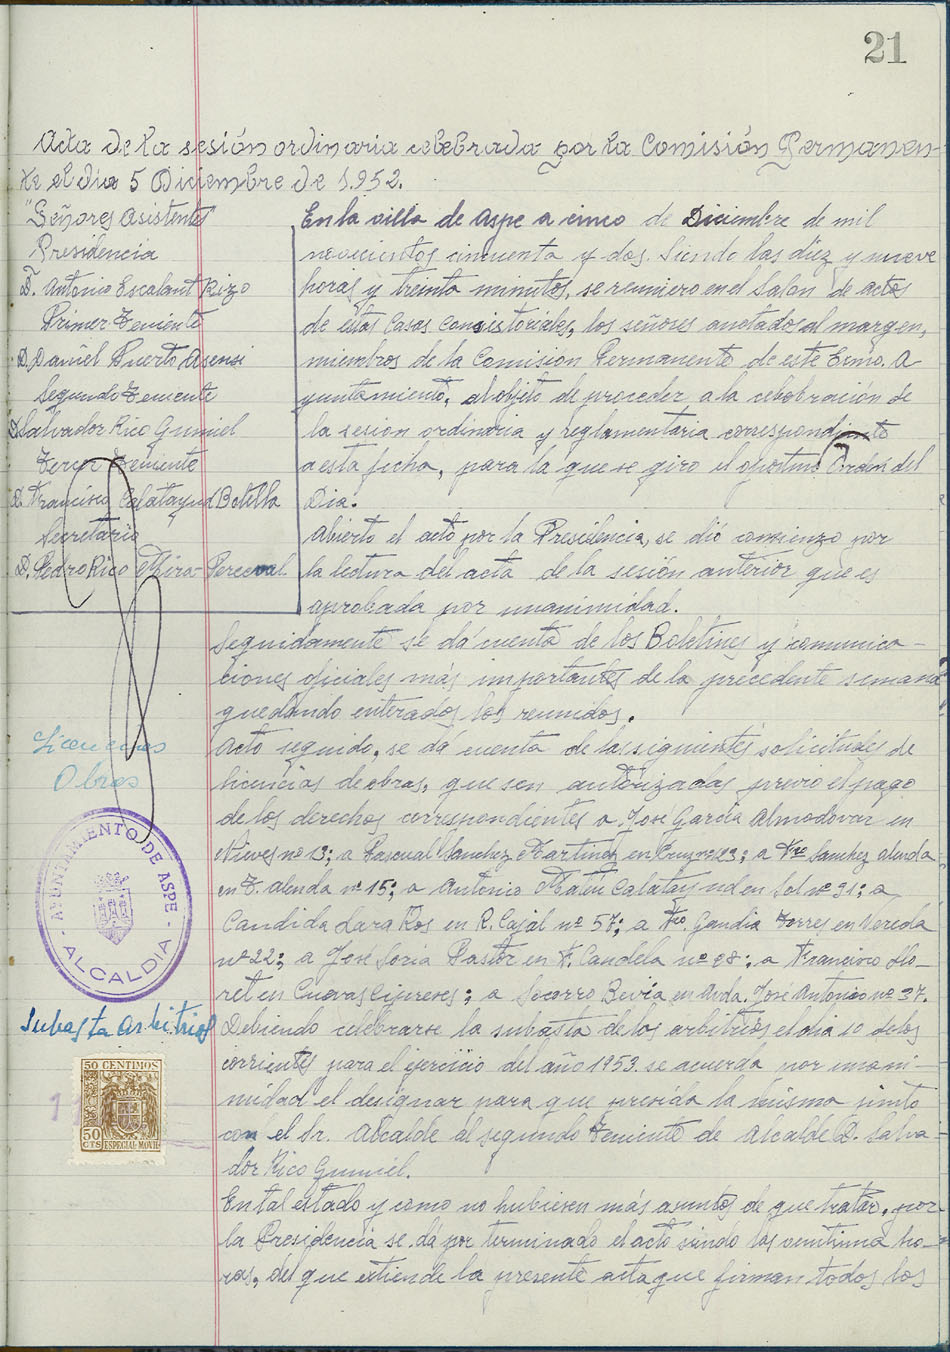 21
Acta de la sesión ordinaria celebrada por la Comisión Permanen-
te el dia 5 Diciembre de 1.952.
"Señores Asistentes"
Presidencia
D. Antonio Escalant Rizo
Primer Teniente
D. Daniel Puerto Asensi
Segundo Teniente
D. Salvador Rico Gumiel
Tercer Teniente
D. Francisco Calatayud Botella
Secretario
D. Pedro Rico Mira-Perceval
En la villa de Aspe a cinco de Diciembre de mil
novecientos cincuenta y dos. Siendo las diez y nueve
horas y treinta minutos, se reuniero en el Salon de actos
de estas Casas Consistoriales, los señoses anotados al margen,
miembros de la Comision Permanente de este Exmo. A
yuntamiento, al objeto de proceder a la celebración de
la sesion ordinaria y reglamentaria correspondiente
a esta fecha, para la que se giro el oportuno Orden del
Dia.
Abierto el acto por la Presidencia, se dió comienzo por
la lectura del acta de la sesión anterior que es
aprobada por unanimidad.
Seguidamente se dá cuenta de los Boletines y comunica-
ciones oficiales más importantes de la precedente semana
quedando enterados los reunidos.
Licencias
Obras
Acto seguido, se dá cuenta de las siguientes solicitudes de
licencias de obras, que son autorizadas previo el pago
de los derechos correspondientes a José García Almodovar en
Nieves nº 13; a Pascual Sanchez Martinez en Cruz nº 23; a Fco Sanchez Alenda
en T. Alenda nº 15; a Antonio Calatayud en Sol nº 31; a
Candida Lara Ros en R. Cajal nº 57; a Fco. Gandia Torres en Vereda
nº 22; a José Soria Pastor en F. Candela nº 28; a Francisco Llo-
ret en Cuevas Cipreses; a Socorro Beviá en Avda. José Antonio nº 37.
AYUNTAMIENTO DE ASPE
- ALCALDIA -
Subasta Arbitrios
Debiendo celebrarse la subasta de los arbitrios el dia 10 de los
corrientes para el ejercicio del año 1953 se acuerda por unani-
midad el designar para que presida la misma junto
con el Sr. Alcalde al segundo Teniente de Alcalde D. Salva-
dor Rico Gumiel.
50 CENTIMOS
50
CTS ESPECIAL MOVIL
En tal estado y como no hubiesen más asuntos de que tratar, por
la Presidencia se dá por terminado el acto siendo las veintiuna ho-
ras, del que extiende la presente acta que firman todos los